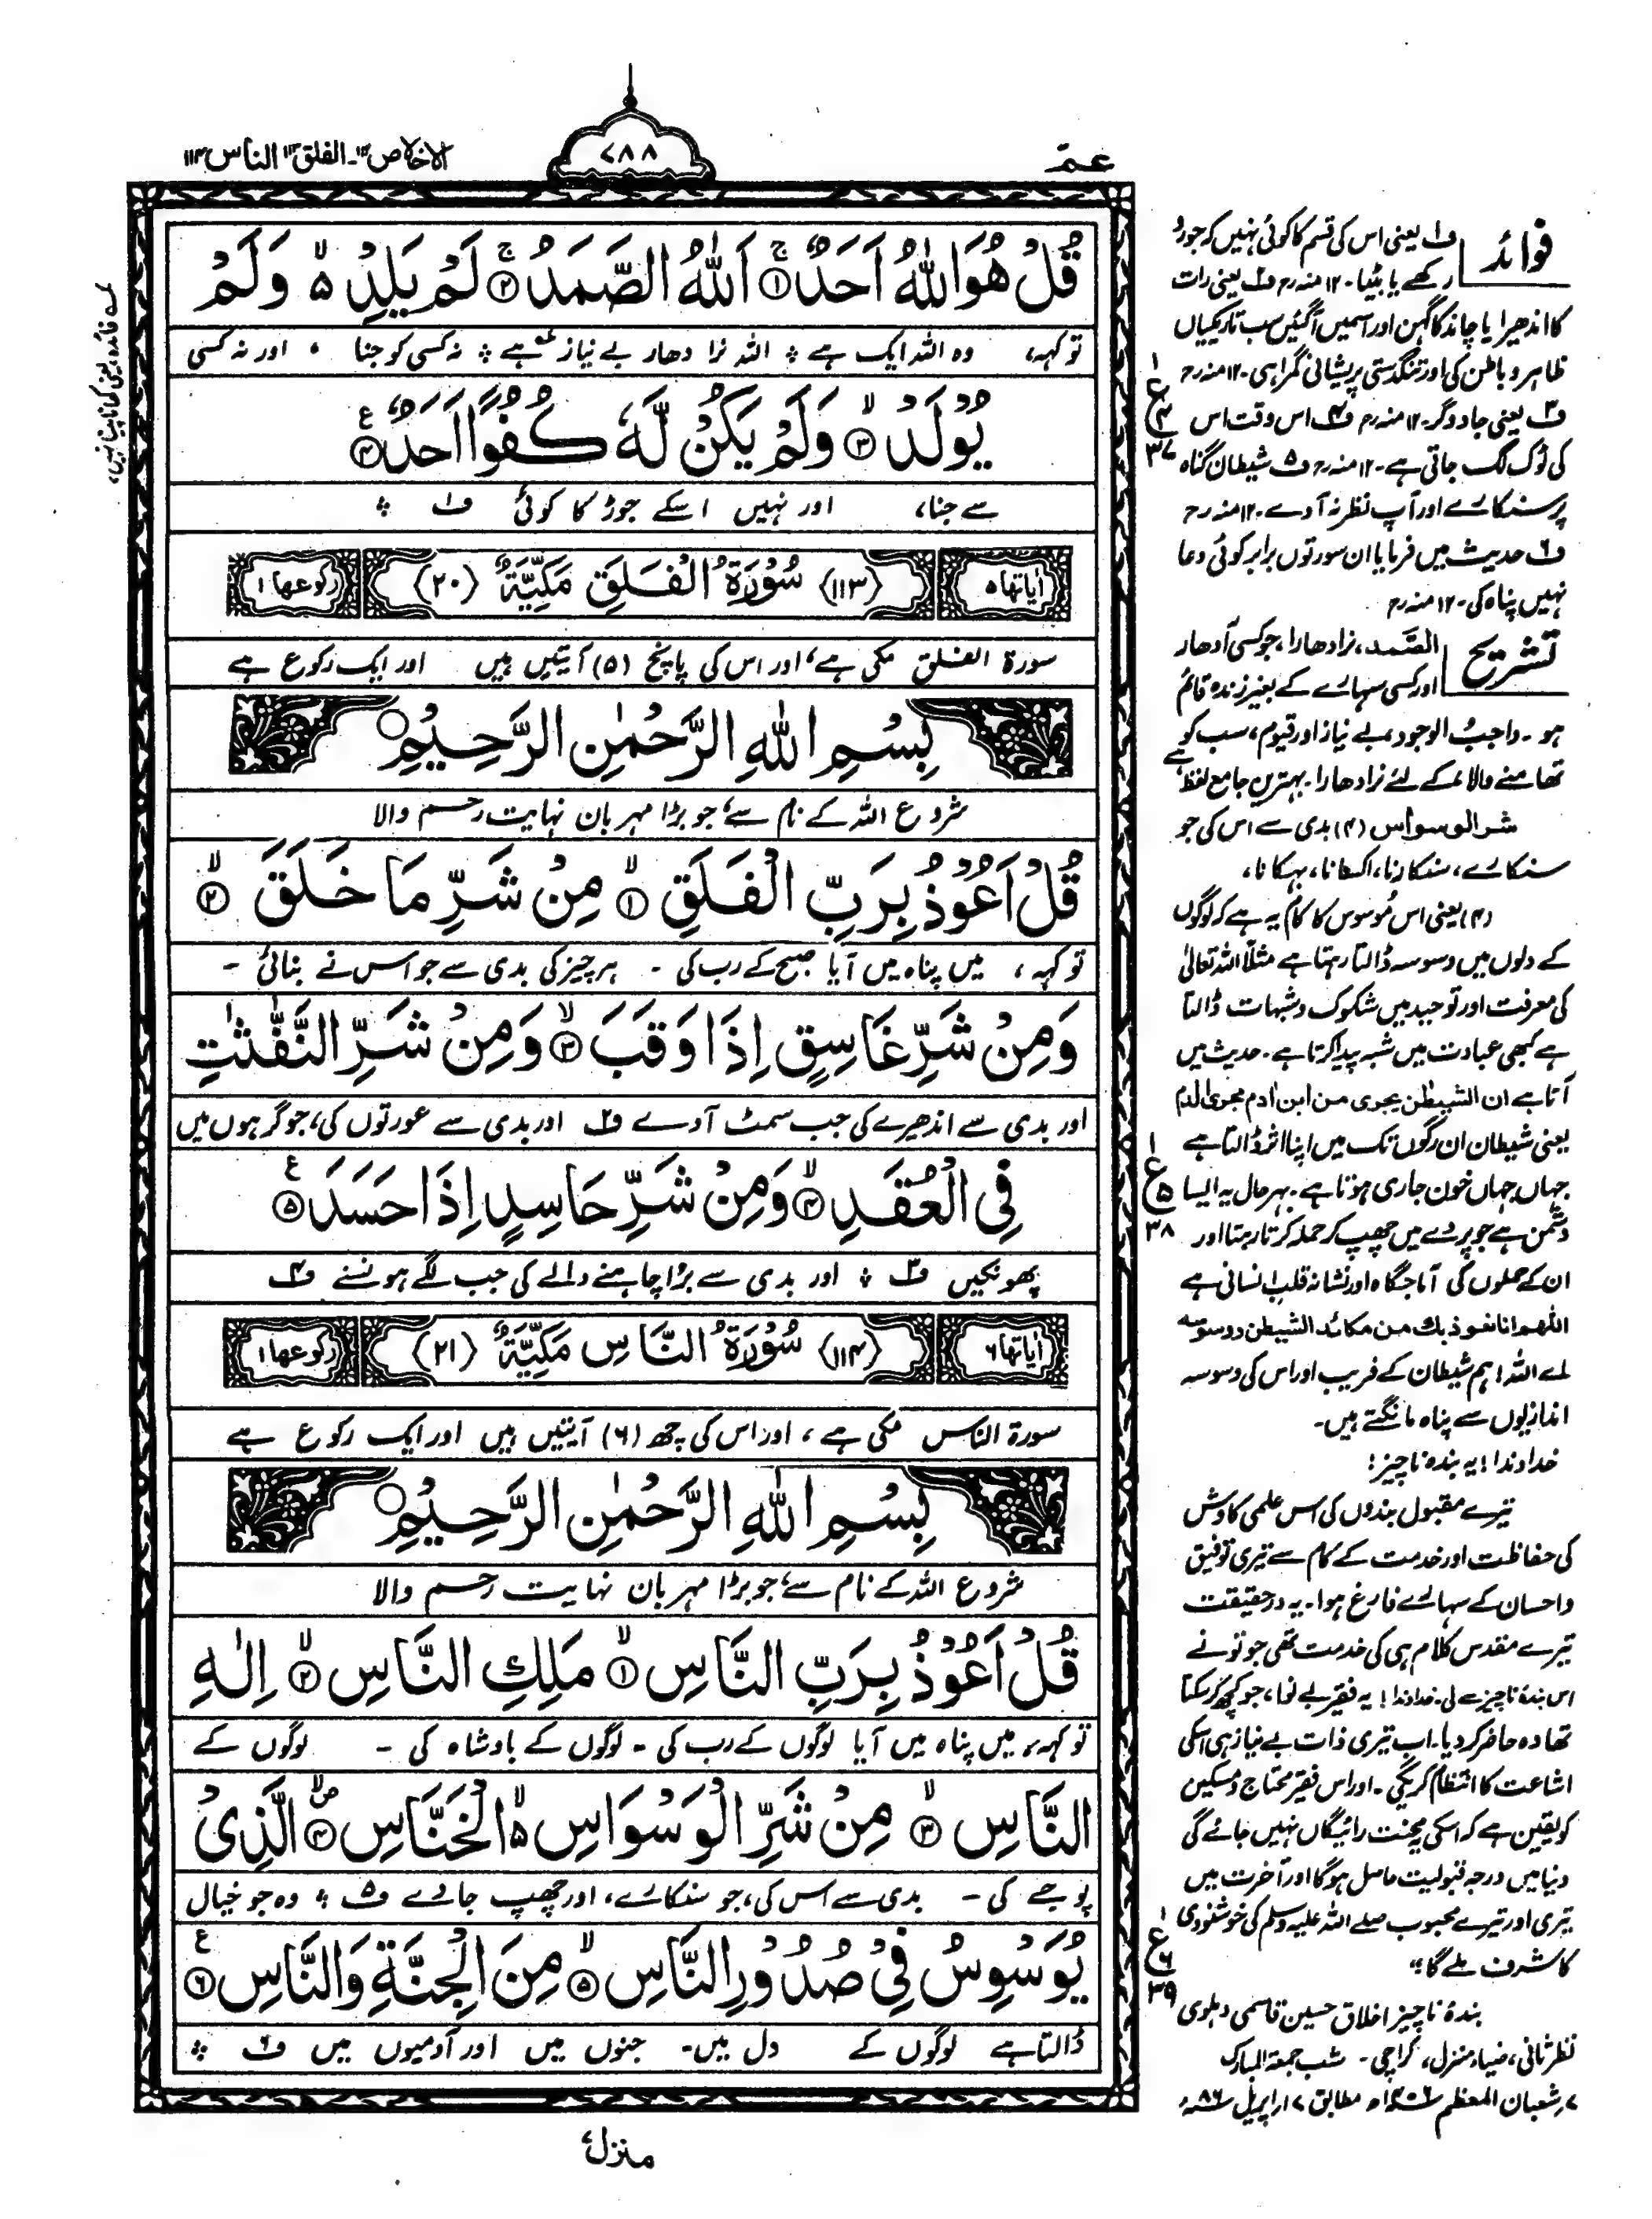 عمّ
٧٨٨
الاخلاص ١١٢۔ الفلق ١١٣ الناس ١١٤
قُلْ هُوَ اللّٰهُ اَحَدٌ ۚ‏﴿۱﴾ اَللّٰهُ الصَّمَدُ ۚ‏﴿۲﴾ لَمْ يَلِدْ ۙ۵ وَلَمْ
تو کہہ، وہ اللہ ایک ہے ؞ اللہ نرا دھار بے نیاز عہ ہے ؞ نہ کسی کو جنا ، اور نہ کسی
يُوْلَدْ ۙ‏﴿۳﴾ وَلَمْ يَكُنْ لَّهٗ كُفُوًا اَحَدٌ ‏﴿۴﴾ ع
سے جنا، اور نہیں اسکے جوڑ کا کوئی ف١ ؞
اٰیاتها ۵ (۱۱۳) سُوْرَةُ الْفَلَقِ مَكِّيَّةٌ (۲۰) رکوعها ۱
سورۃ الفلق مکی ہے، اور اس کی پانچ (۵) آیتیں ہیں اور ایک رکوع ہے
بِسْمِ اللّٰهِ الرَّحْمٰنِ الرَّحِيْمِ ○
شروع اللہ کے نام سے، جو بڑا مہربان نہایت رحم والا
قُلْ اَعُوْذُ بِرَبِّ الْفَلَقِ ۙ‏﴿۱﴾ مِنْ شَرِّ مَا خَلَقَ ۙ‏﴿۲﴾
تو کہہ ، میں پناہ میں آیا صبح کے رب کی ۔ ہر چیز کی بدی سے جو اس نے بنائی ۔
وَمِنْ شَرِّ غَاسِقٍ اِذَا وَقَبَ ۙ‏﴿۳﴾ وَمِنْ شَرِّ النَّفّٰثٰتِ
اور بدی سے اندھیرے کی جب سمٹ آوے ف٢ اور بدی سے عورتوں کی، جو گرہوں میں
فِي الْعُقَدِ ۙ‏﴿۴﴾ وَمِنْ شَرِّ حَاسِدٍ اِذَا حَسَدَ ‏﴿۵﴾ ع
پھونکیں ف٣ ؞ اور بدی سے برا چاہنے والے کی جب لگے ہونسنے ف۴
اٰیاتها ۶ (۱۱۴) سُوْرَةُ النَّاسِ مَكِّيَّةٌ (۲۱) رکوعها ۱
سورۃ الناس مکی ہے ، اور اس کی چھ (۶) آیتیں ہیں اور ایک رکوع ہے
بِسْمِ اللّٰهِ الرَّحْمٰنِ الرَّحِيْمِ ○
شروع اللہ کے نام سے، جو بڑا مہربان نہایت رحم والا
قُلْ اَعُوْذُ بِرَبِّ النَّاسِ ۙ‏﴿۱﴾ مَلِكِ النَّاسِ ۙ‏﴿۲﴾ اِلٰهِ
تو کہہ، میں پناہ میں آیا لوگوں کے رب کی ۔ لوگوں کے بادشاہ کی ۔ لوگوں کے
النَّاسِ ۙ‏﴿۳﴾ مِنْ شَرِّ الْوَسْوَاسِ ۙ۵ الْخَنَّاسِ ‏﴿۴﴾ الَّذِىْ
پوجے کی ۔ بدی سے اس کی، جو سنکارے، اور چھپ جاوے ف۵ ؞ وہ جو خیال
يُوَسْوِسُ فِىْ صُدُوْرِ النَّاسِ ۙ‏﴿۵﴾ مِنَ الْجِنَّةِ وَالنَّاسِ ‏﴿۶﴾ ع
ڈالتا ہے لوگوں کے دل میں۔ جنوں میں اور آدمیوں میں ف۶ ؞
منزل ٧
عہ فائدہ، یعنی کھانا پینا نہیں،
فوائد
ف١ یعنی اس کی قسم کا کوئی نہیں کہ جورو
رکھے یا بیٹا۔ ۱۲ منہ رح ف٢ یعنی رات
کا اندھیرا یا چاند کا گہن اور اسمیں آگئیں سب تاریکیاں
ظاہر و باطن کی اور تنگدستی پریشانی گمراہی۔ ۱۲ منہ رح
ف٣ یعنی جادوگر۔ ۱۲ منہ رح ف۴ اس وقت اس
کی ٹوک لگ جاتی ہے۔ ۱۲ منہ رح ف۵ شیطان گناہ
پر سنکارے اور آپ نظر نہ آوے۔ ۱۲ منہ رح
ف۶ حدیث میں فرمایا ان سورتوں برابر کوئی دعا
نہیں پناہ کی۔ ۱۲ منہ رح
تشریح
الصَّمد، نرادھارا، جو کسی آدھار
اور کسی سہارے کے بغیر زندہ قائم
ہو۔ واجبُ الوجود، بے نیاز اور قیوم، سب کو
تھامنے والا، کے لئے نرادھارا۔ بہترین جامع لفظ ہے
شر الوسواس (۴) بدی سے اس کی جو
سنکارے، سنکارنا، اکسانا، بہکانا،
(۴) یعنی اس مُوسوس کا کام یہ ہے کہ لوگوں
کے دلوں میں وسوسہ ڈالتا رہتا ہے مثلاً اللہ تعالیٰ
کی معرفت اور توحید میں شکوک و شبہات ڈالتا
ہے کبھی عبادت میں شبہ پیدا کرتا ہے۔ حدیث میں
آتا ہے ان الشیطٰن یجری من ابن اٰدم مجری الدم
یعنی شیطان ان رگوں تک میں اپنا اثر ڈالتا ہے
جہاں جہاں خون جاری ہوتا ہے۔ بہرحال یہ ایسا
دشمن ہے جو پردے میں چھپ کر حملہ کرتا رہتا اور
ان کے حملوں کی آماجگاہ اور نشانہ قلب انسانی ہے
اللهم انا نعوذ بك من مکائد الشیطٰن ووسوسه
اے اللہ! ہم شیطان کے فریب اور اس کی وسوسہ
اندازیوں سے پناہ مانگتے ہیں۔
خداوندا! یہ بندہ ناچیز!
تیرے مقبول بندوں کی اس علمی کاوش
کی حفاظت اور خدمت کے کام سے تیری توفیق
و احسان کے سہارے فارغ ہوا۔ یہ درحقیقت
تیرے مقدس کلام ہی کی خدمت تھی جو تو نے
اس بندۂ ناچیز سے لی۔ خداوندا! یہ فقیر بے نوا، جو کچھ کر سکتا
تھا وہ حاضر کر دیا۔ اب تیری ذات بے نیاز ہی اسکی
اشاعت کا انتظام کریگی۔ اور اس فقیر محتاج و مسکین
کو یقین ہے کہ اسکی یہ محنت رائیگاں نہیں جائے گی
دنیا میں درجہ قبولیت حاصل ہوگا اور آخرت میں
تیری اور تیرے محبوب صلے اللہ علیہ وسلم کی خوشنودی
کا شرف ملے گا،،
بندۂ ناچیز اخلاق حسین قاسمی دہلوی
نظرثانی، ضیاء منزل، کراچی۔ شب جمعۃ المبارک
٧ شعبان المعظم ۱۴۰۶ھ مطابق ۱۷ اپریل ۸۶ء
۱ ع ۴ ٣٧
۱ ع ۵ ٣٨
۱ ع ۶ ٣٩